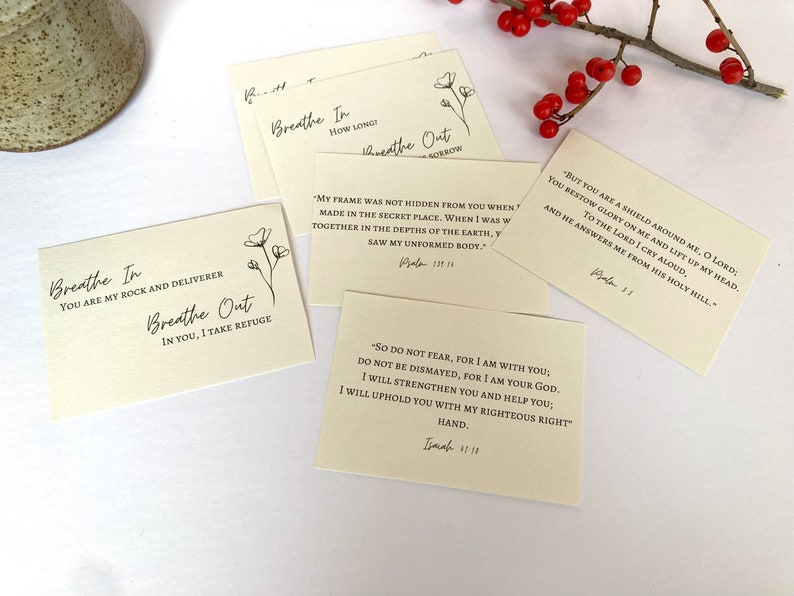 Breathe In
How long?
Breathe Out
sorrow
"My frame was not hidden from you when I
made in the secret place. When I was w
together in the depths of the earth, y
saw my unformed body."
Psalm 139:14
"But you are a shield around me, O Lord;
You bestow glory on me and lift up my head.
To the Lord I cry aloud,
and he answers me from his holy hill."
Psalm 3:3
Breathe In
You are my rock and deliverer
Breathe Out
In you, I take refuge
"So do not fear, for I am with you;
do not be dismayed, for I am your God.
I will strengthen you and help you;
I will uphold you with my righteous right"
hand.
Isaiah 41:10